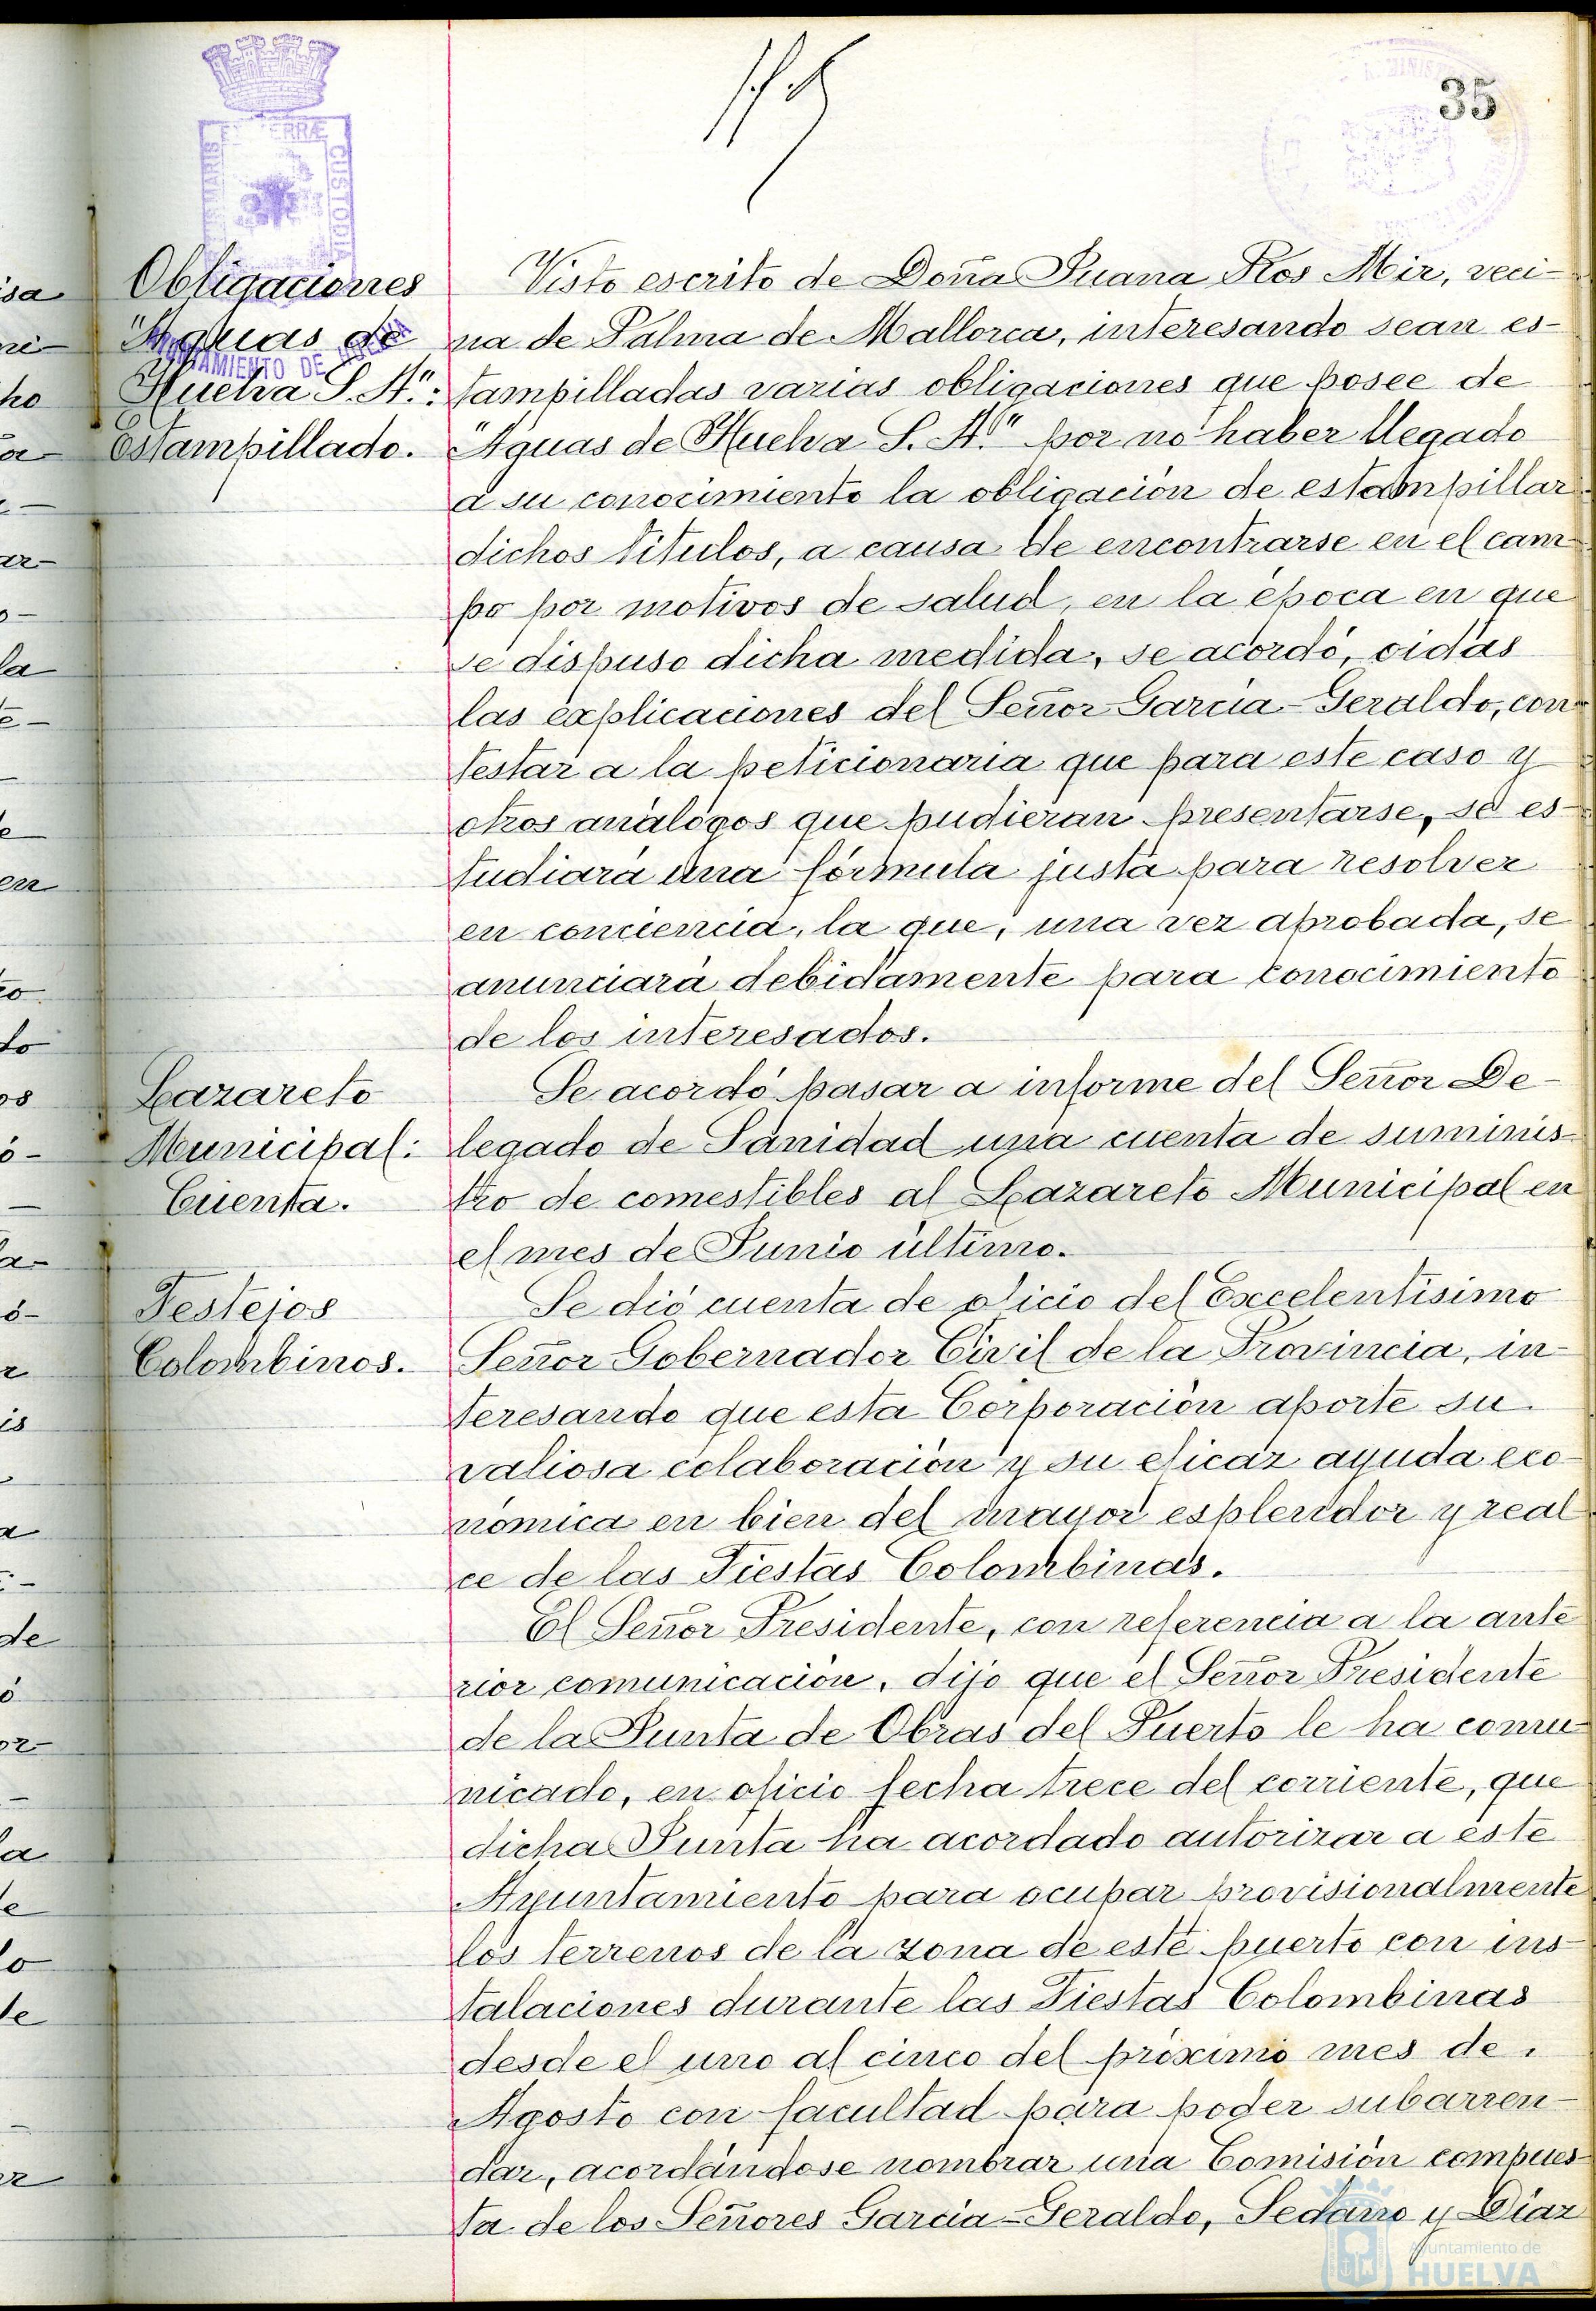 35
Obligaciones
"Aguas de
Huelva S. A.":
Estampillado.
Visto escrito de Doña Juana Ros Mir, veci-
na de Palma de Mallorca, interesando sean es-
tampilladas varias obligaciones que posee de
"Aguas de Huelva S. A." por no haber llegado
a su conocimiento la obligación de estampillar
dichos titulos, a causa de encontrarse en el cam-
po por motivos de salud, en la época en que
se dispuso dicha medida, se acordó, oidas
las explicaciones del Señor Garcia-Geraldo, con-
testar a la peticionaria que para este caso y
otros análogos que pudieran presentarse, se es-
tudiará una fórmula justa para resolver
en conciencia, la que, una vez aprobada, se
anunciará debidamente para conocimiento
de los interesados.
Lazareto
Municipal:
Cuenta.
Se acordó pasar a informe del Señor De-
legado de Sanidad una cuenta de suminis-
tro de comestibles al Lazareto Municipal en
el mes de Junio último.
Festejos
Colombinos.
Se dió cuenta de oficio del Excelentisimo
Señor Gobernador Civil de la Provincia, in-
teresando que esta Corporación aporte su
valiosa colaboración y su eficaz ayuda eco-
nómica en bien del mayor esplendor y real-
ce de las Fiestas Colombinas.
El Señor Presidente, con referencia a la ante-
rior comunicación, dijo que el Señor Presidente
de la Junta de Obras del Puerto le ha comu-
nicado, en oficio fecha trece del corriente, que
dicha Junta ha acordado autorizar a este
Ayuntamiento para ocupar provisionalmente
los terrenos de la zona de este puerto con ins-
talaciones durante las Fiestas Colombinas
desde el uno al cinco del próximo mes de
Agosto con facultad para poder subarren-
dar, acordándose nombrar una Comisión compues-
ta de los Señores Garcia-Geraldo, Sedano y Diaz
Ayuntamiento de
HUELVA